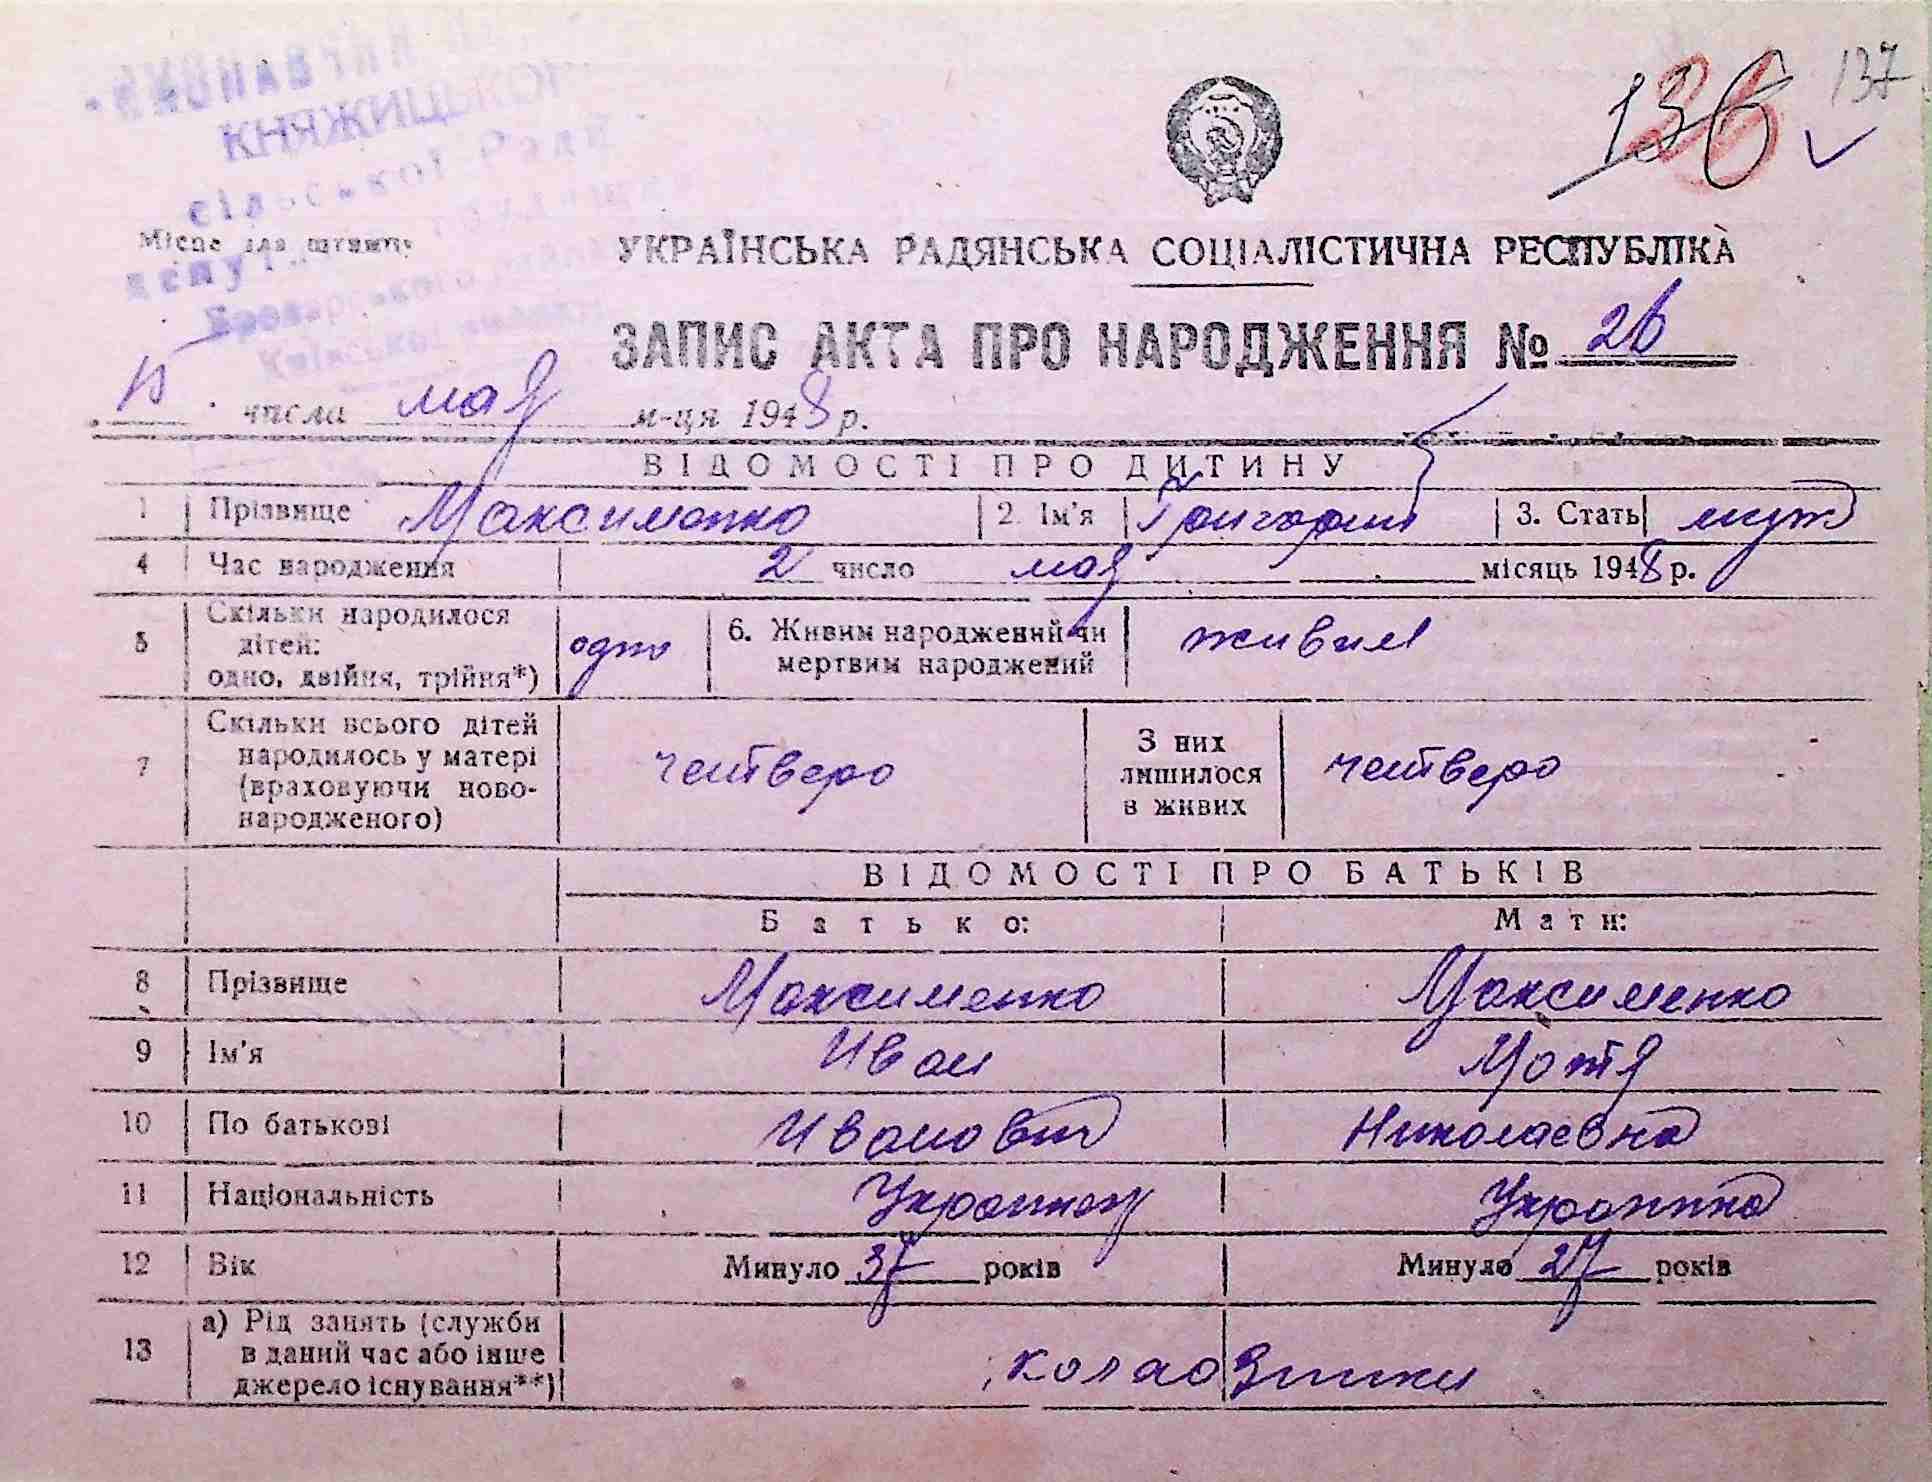 КНЯЖИЦЬКОЇ
137
136
сільської Ради
Місце для штампу
Броварського
Київської області
УКРАЇНСЬКА РАДЯНСЬКА СОЦІАЛІСТИЧНА РЕСПУБЛІКА
ЗАПИС АКТА ПРО НАРОДЖЕННЯ № 26
числа мая м-ця 1948 р.
ВІДОМОСТІ ПРО ДИТИНУ
1 Прізвище Максименко 2. Ім'я Григорий 3. Стать муж
4 Час народження 2 число мая місяць 1948 р.
5 Скільки народилося дітей: одно, двійня, трійня*) одно 6. Живим народжений чи мертвим народжений живим
7 Скільки всього дітей народилось у матері (враховуючи новонародженого) четверо З них лишилося в живих четверо
ВІДОМОСТІ ПРО БАТЬКІВ
Батько: Мати:
8 Прізвище Максименко Максименко
9 Ім'я Иван Мотя
10 По батькові Иванович Николаевна
11 Національність Украинец Украинка
12 Вік Минуло 37 років Минуло 27 років
13 а) Рід занять (служби в даний час або інше джерело існування**)